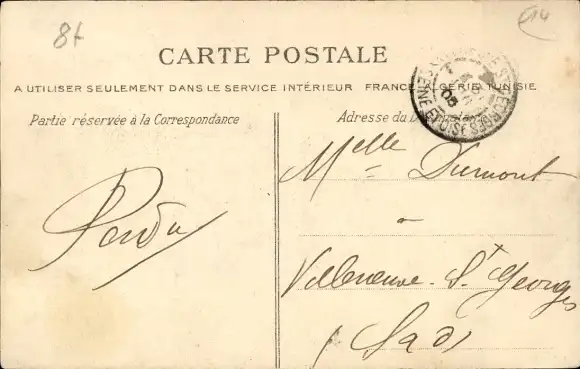 8f
14
CARTE POSTALE
A UTILISER SEULEMENT DANS LE SERVICE INTÉRIEUR FRANCE ALGÉRIE TUNISIE
Partie réservée à la Correspondance
Adresse du
SEINE ET OISE
05
Melle Dumont
à
Villeneuve-St Georges